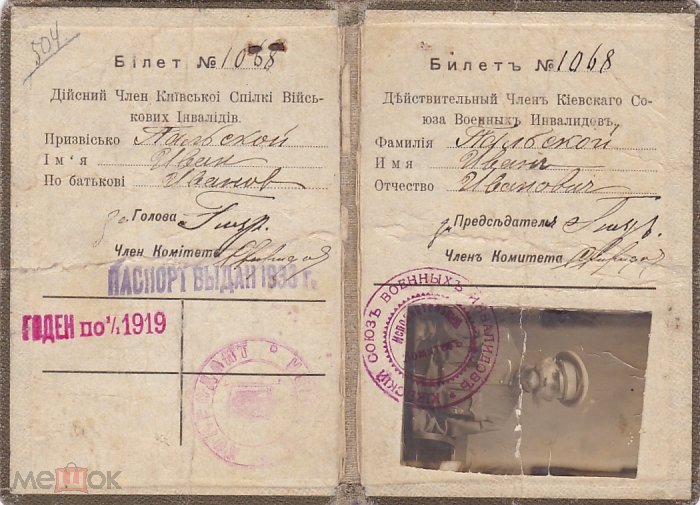 504
Білет № 1068
Дійсний Член Київської Спілкі Війсь-
кових Інвалідів.
Призвісько Пальской
Ім'я Иван
По батькові Иванов
Голова
Член Комітета
ПАСПОРТ ВЫДАН 1933 г.
ГОДЕН по 1/1 1919
Билетъ № 1068
Дѣйствительный Членъ Кіевскаго Со-
юза Военныхъ Инвалидовъ.
Фамилія Пальской
Имя Иванъ
Отчество Ивановичъ
Предсѣдатель
Членъ Комитета
КІЕВСКІЙ СОЮЗЪ ВОЕННЫХЪ ИНВАЛИДОВЪ
мешок